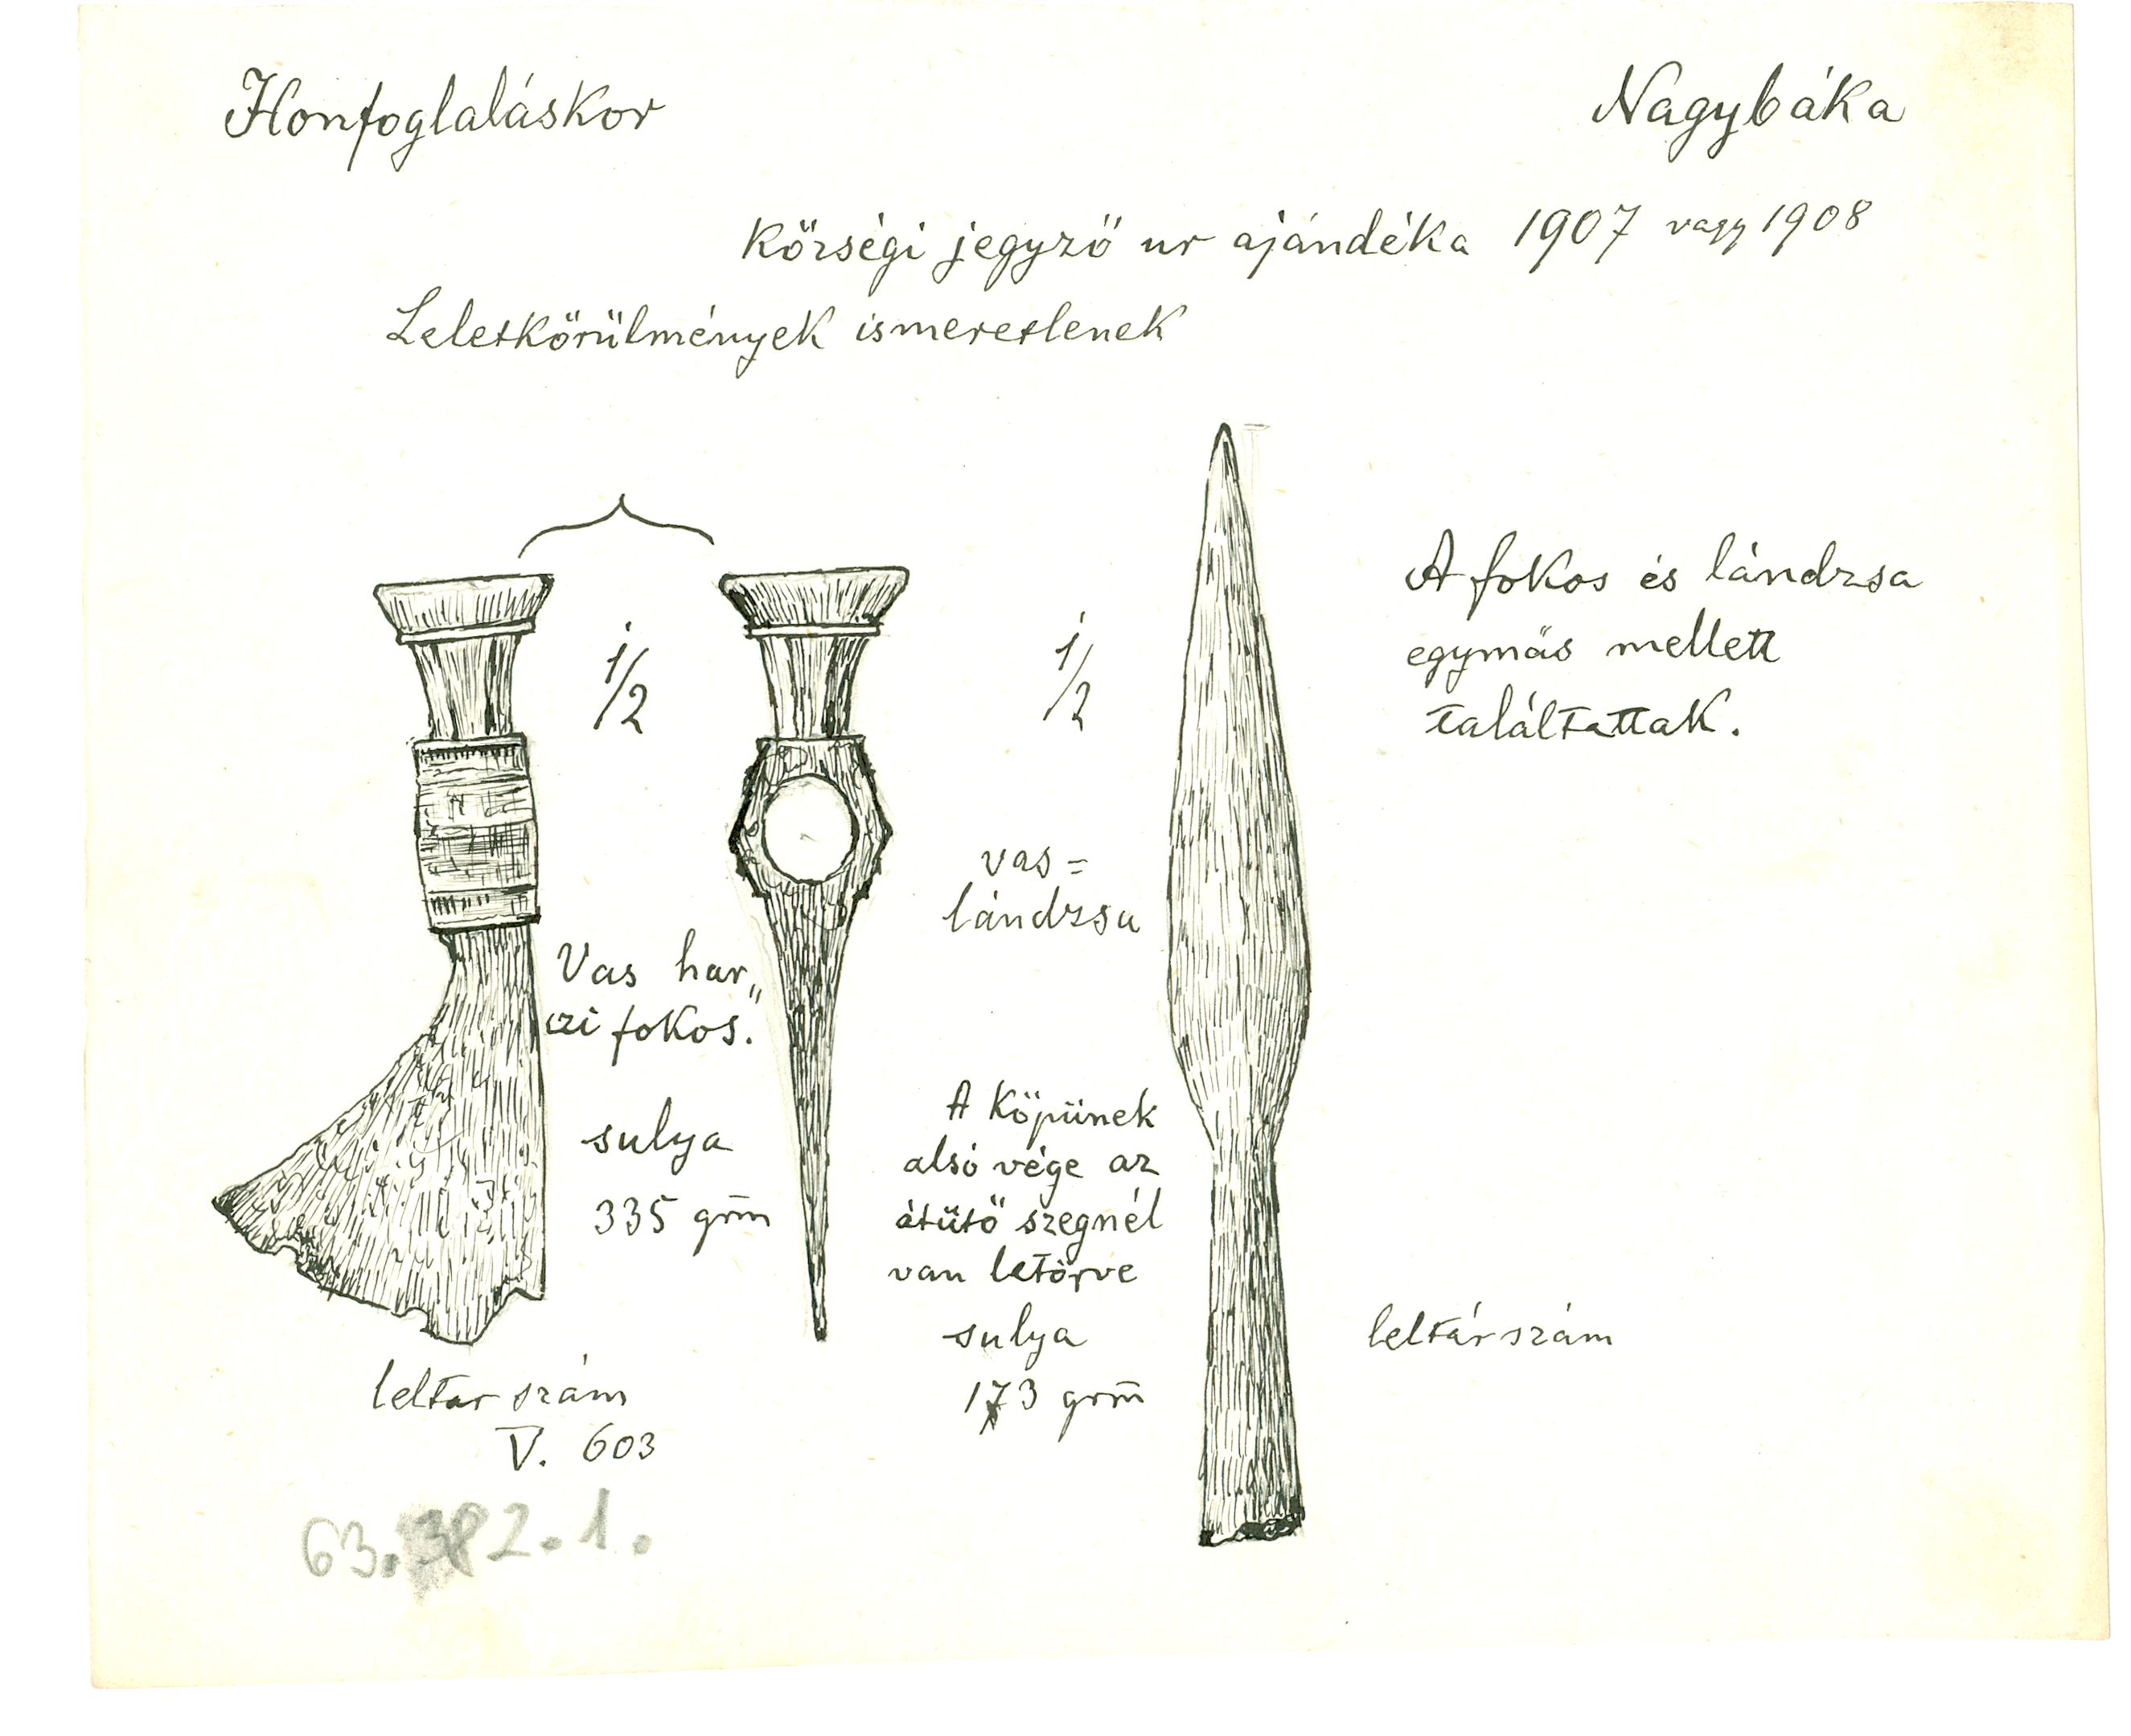 Honfoglaláskor
Nagybáka
Községi jegyző ur ajándéka 1907 vagy 1908
Leletkörülmények ismeretlenek
1/2
1/2
A fokos és lándzsa
egymás mellett
találtattak.
vas=
lándzsa
Vas har„
czi fokos.
sulya
335 grm̄
A Köpünek
alsó vége az
átütő szegnél
van letörve
sulya
173 grm̄
leltár szám
V. 603
leltárszám
63.382.1.